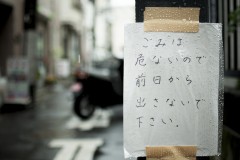 ごみは
危ないので
前日から
出さないで
下さい。